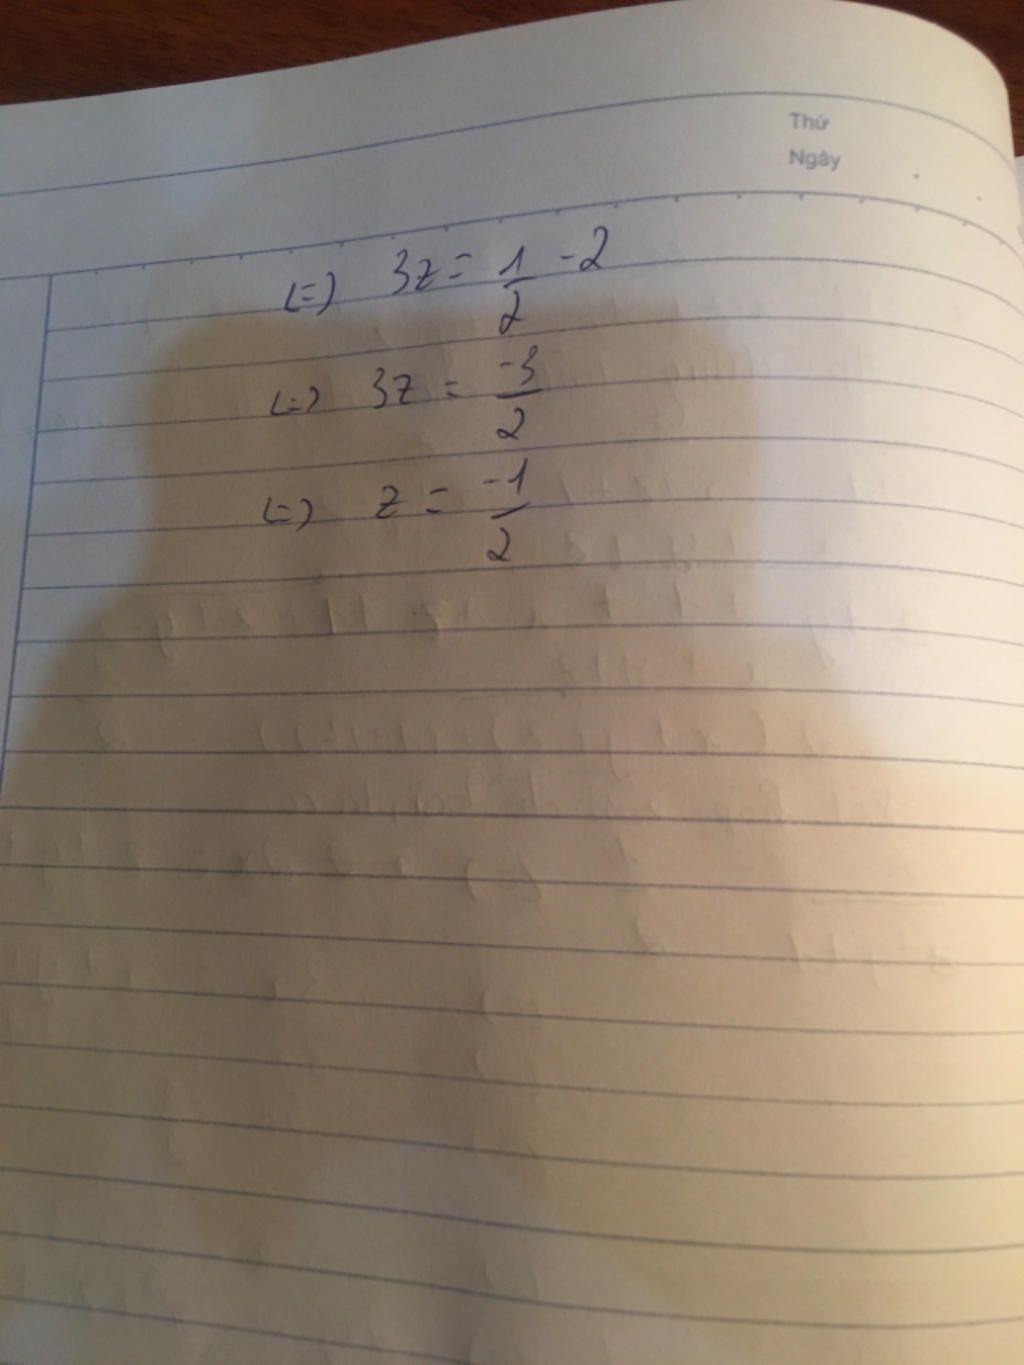 Thứ
Ngày
(=) 3z = 1/2 - 2
(=) 3z = -3/2
(=) z = -1/2